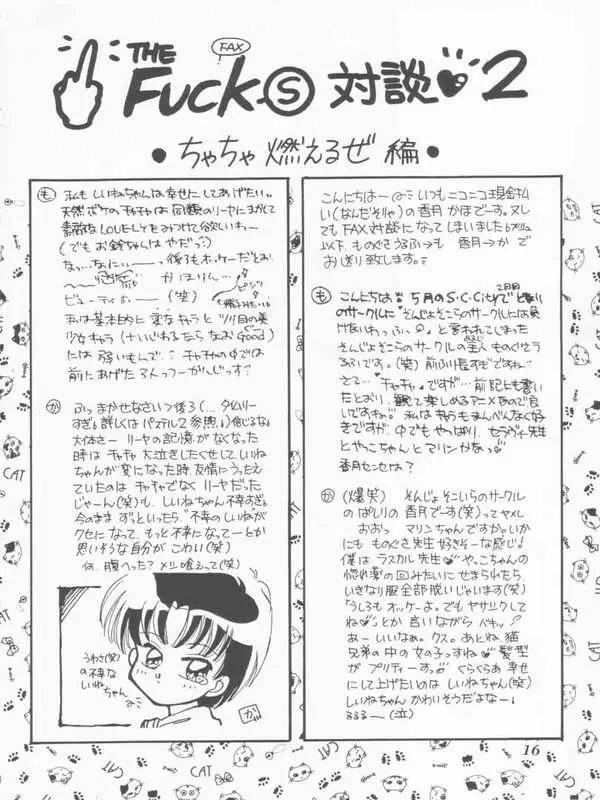 FAX
THE
FuckⓈ 対談 2
• ちゃちゃ 燃えるぜ 編 •
こんにちは〜 いつもニコニコ現金払
い(なんだそりゃ)の香月 かほでーす。又し
ても FAX対談になってしまいました
以下、ものぐさうるふ→も 香月→か で
お送り致します。
も こんにちは 5月のS・C・Cityで となり
2日目
のサークルに「そんじょそこらのサークルには負
けないわっふぅ」と言われてしまった
そんじょそこらのサークルの主人 ものぐさう
るふです。(笑) 前ふり長すぎですねー
さて…「チャチャ」ですが…前記にも書い
たとおり、観て楽しめるアニメなので良
いですね。私はキャラもまんべんなく好
きですが、中でもやっぱり、セラヴィー先生
とやっこちゃんとマリンかなっ
香月センセは?
か (爆笑) そんじょそこいらのサークル
のぱしりの 香月でーす(笑)ってヤメレ
おおっ マリンちゃんですかぁ。いか
にも ものぐさ先生 好きそーな感じ!
僕は ラスカル先生 やっこちゃんの
惚れ薬の回みたいに せまられたら
いきなり服全部脱いじゃいます(笑)
「うしろもオッケーよ。でもヤサシクして
ね」とか 言いながら
あー いいなぁ。クス。あとね、猫
兄弟の中の女の子っすね 髪型
が プリティーすっ。くらくらぁ 幸せ
にして上げたいのは しいねちゃん(笑)
しいねちゃん かわいそうだよなー。
るるるー(泣)
も 私も しいねちゃんは幸せにしてあげたい。
天然ボケのチャチャは 同類のリーヤにまかして
素敵なLOVELYをみつけて欲しいわー
(でもお鈴ちゃんはやだっ)
なっ…なにぃー 後ろもオッケーだとお、
かほりん…
ビューティホー (笑)
私は基本的に 変なキャラと ツリ目の美
少女キャラ (+いじわるだったらなおGood)
には 弱いもんで。 チャチャの中では
前にあげた3人っつーかんじっす?
か ふっ まかせなさい>後ろ(…タイムリー
すぎ。詳しくはパステル2 参照。)信じるな
大体さー リーヤの記憶がなくなった
時は チャチャ 大泣きしたくせして、しいね
ちゃんが 変になった時、友情にうったえ
ていたのは チャチャでなく リーヤだった
じゃーん(笑)も、しいねちゃん不幸すぎ。
今のまま ずっといったら “不幸のしいねが
クセになって、もっと不幸になってーとか
思いそうな自分が こわい(笑)
何、腹へった? メシ喰えって(笑)
うわさ(笑)
の不幸な
しいね
ちゃん
か
CAT
CAT
CAT
CAT
16